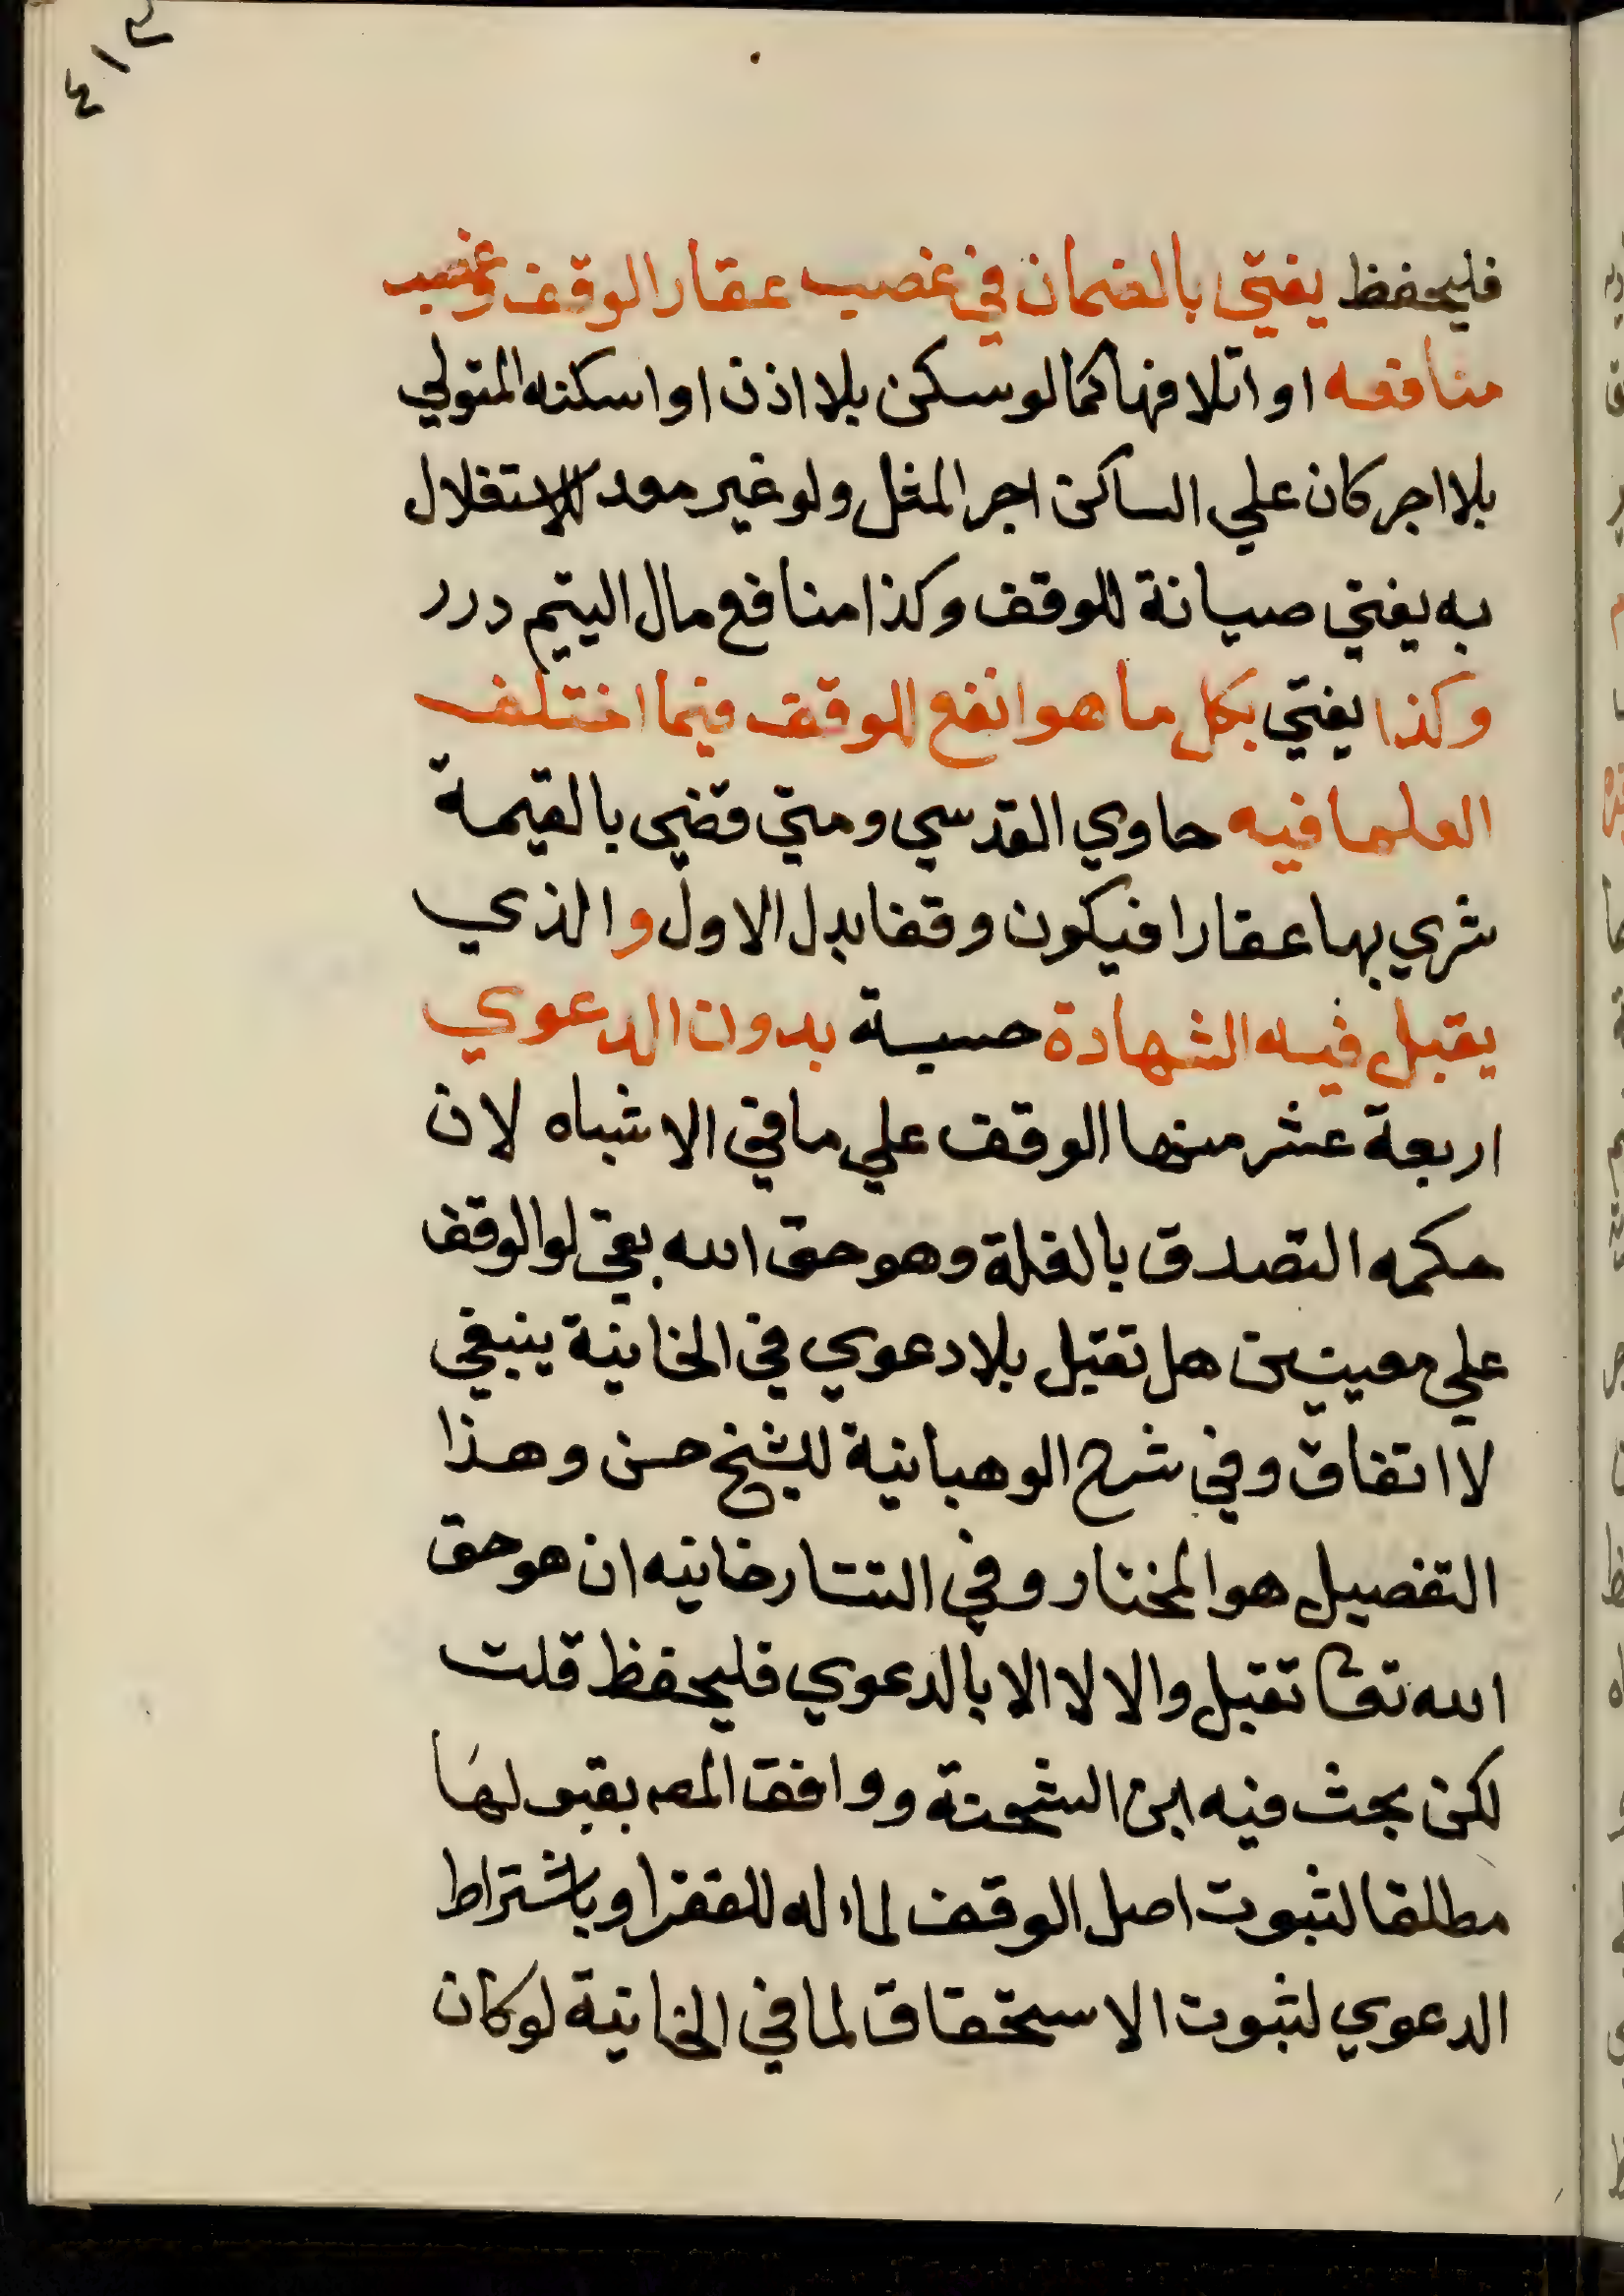 ٤١٢
فليحفظ يفتي بالضمان في غصب عقار الوقف وغصب
منافعه او اتلافها كما لو سكن بلا اذن او اسكنه المتولي
بلا اجر كان علي الساكن اجر المثل ولو غير معد للاستغلال
به يفتي صيانة للوقف وكذا منافع مال اليتيم درر
وكذا يفتي بكل ما هو انفع للوقف فيما اختلف
العلما فيه حاوي القدسي ومتي قضي بالقيمة
شري بها عقارا فيكون وقفا بدل الاول والذي
يقبل فيه الشهادة حسبة بدون الدعوي
اربعة عشر منها الوقف علي ما في الاشباه لان
حكمه التصدق بالغلة وهو حق الله بقي لو الوقف
علي معينين هل تقبل بلا دعوي في الخانية ينبغي
لا اتفاق وفي شرح الوهبانية للشيخ حسن وهذا
التفصيل هو المختار وفي التتارخانيه ان هو حق
الله تعا تقبل والا لا الا بالدعوي فليحفظ قلت
لكن بحث فيه ابن الشحنة ووافقه المص بقبولها
مطلقا لثبوت اصل الوقف لماله للفقرا وباشتراط
الدعوي لثبوت الاستحقاق لما في الخانية لو كان